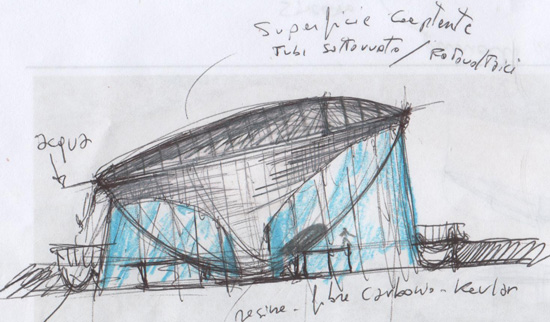 Superficie Captante
Tubi sottovuoto / Fotovoltaici
acqua
resine - fibre Carbonio - Kevlar